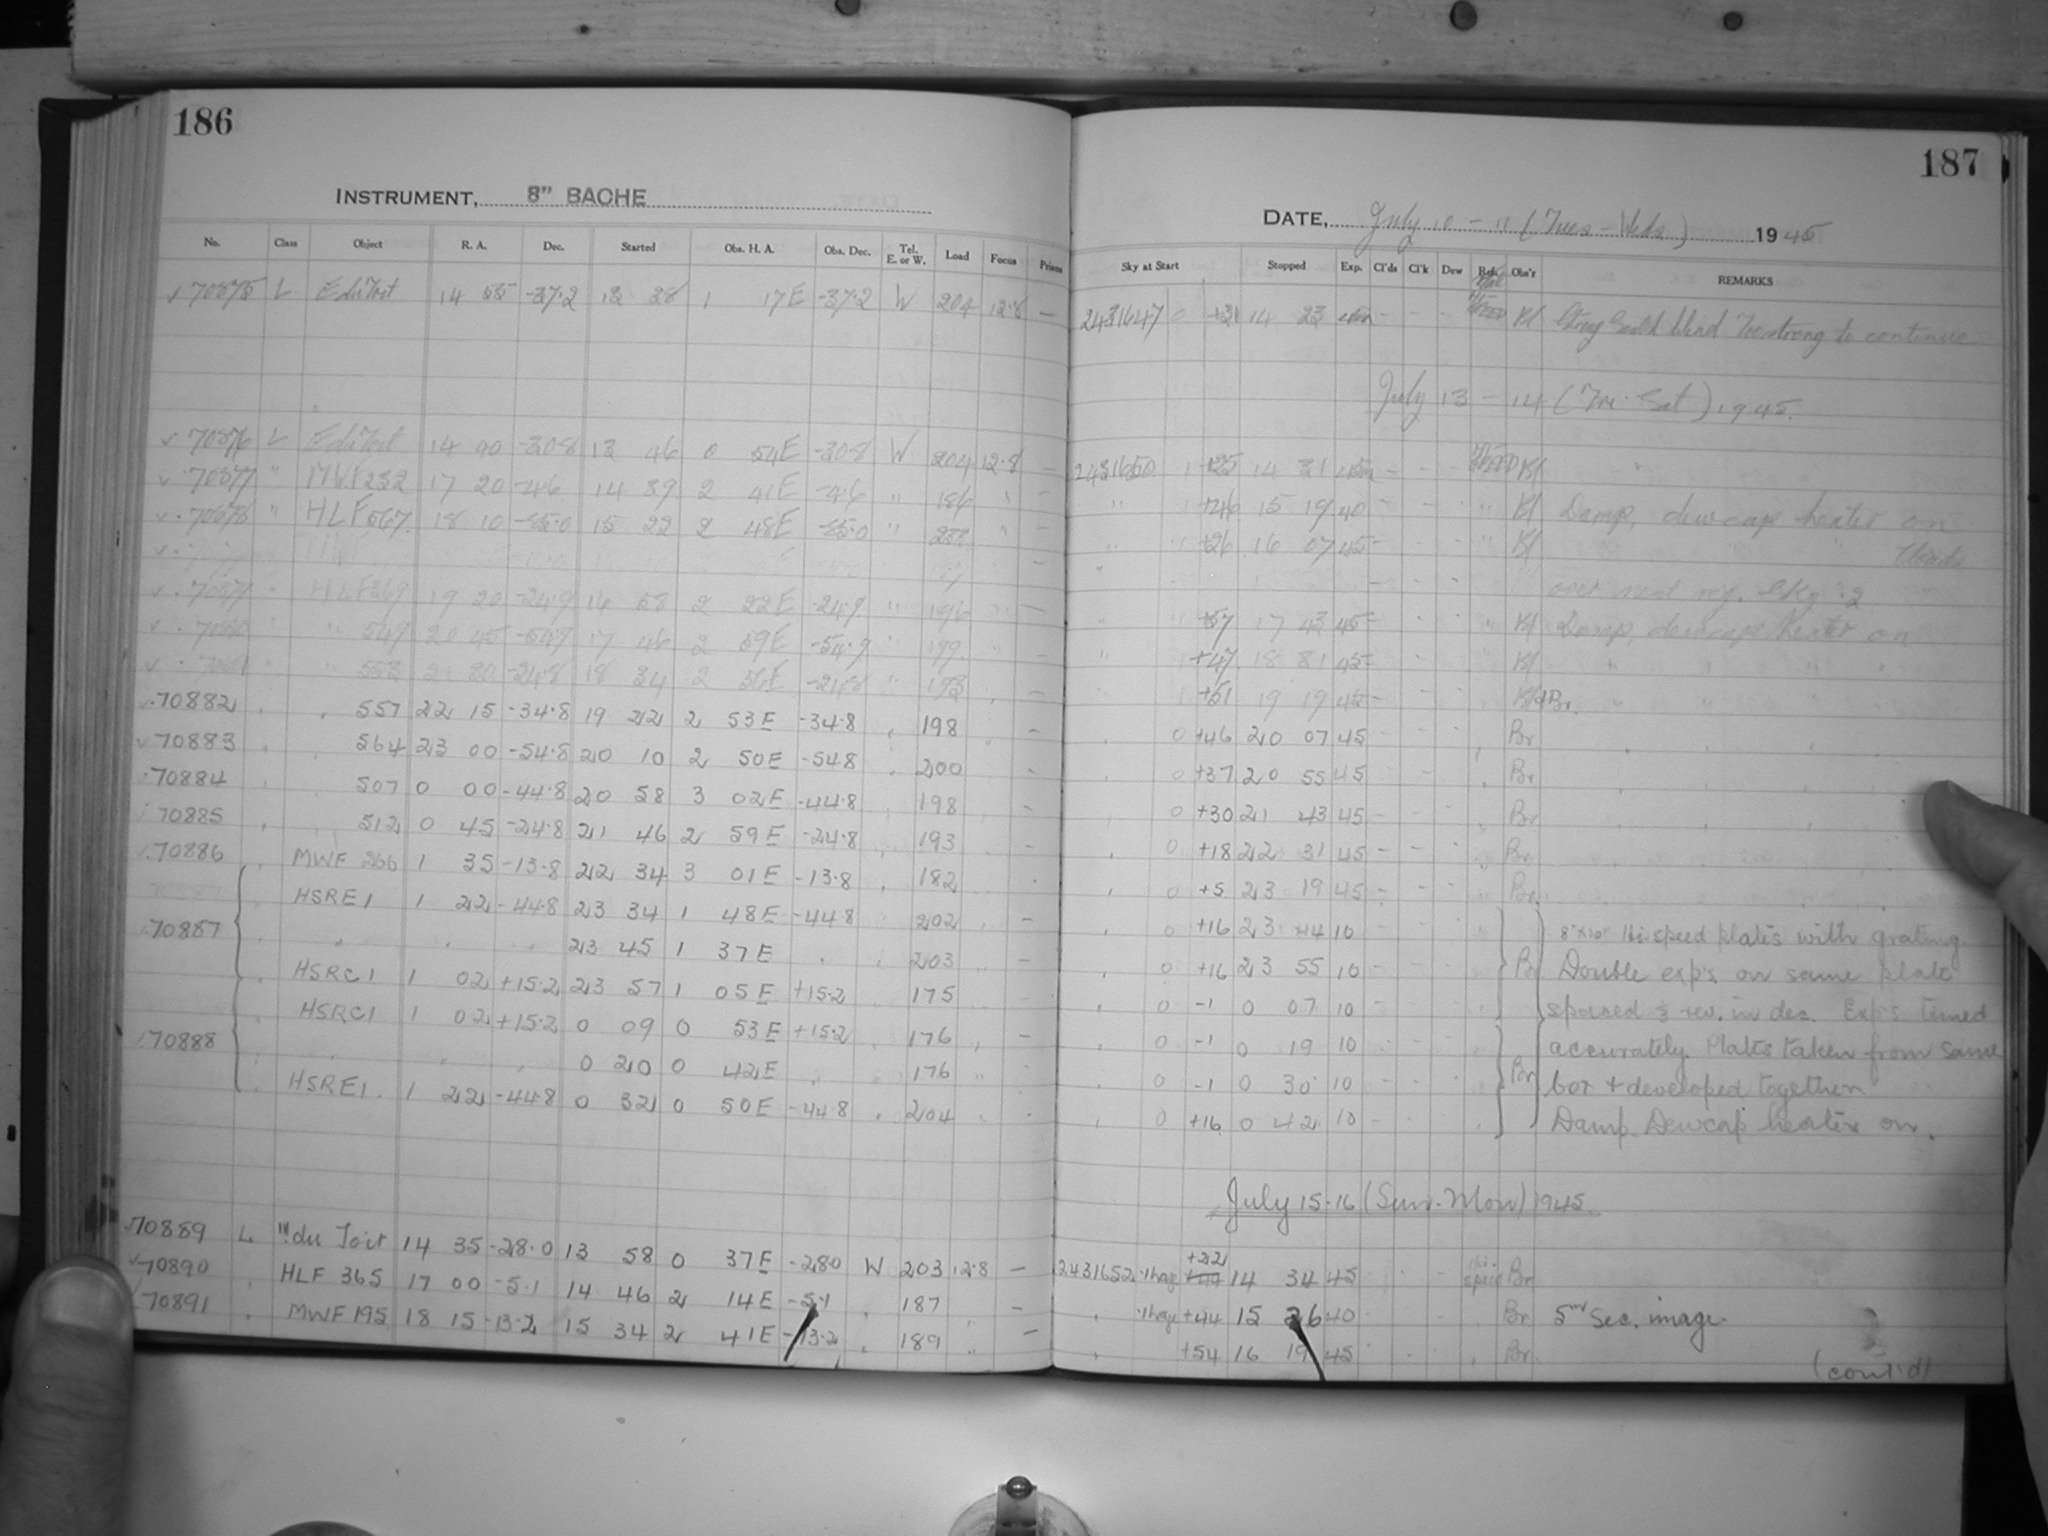 186
INSTRUMENT, 8" BACHE
No. Class Object R. A. Dec. Started Obs. H. A. Obs. Dec. Tel. E. or W. Load Focus Prisms
70875 L E du Toit 14 55 -37.2 13 28 1 17E -37.2 W 204 12.8 —
70876 L E du Toit 14 40 -30.8 13 46 0 54E -30.8 W 204 12.8 —
70877 " MWF 232 17 20 -4.6 14 39 2 41E -4.6 " 186 " —
70878 " HLF 567 18 10 -55.0 15 22 2 48E -55.0 "
HLF 269 19 20 -24.9 16 58 2 22E -24.9 " 196 —
" 549 20 45 -54.9 17 46 2 59E -54.9 " 199 —
553 21 30 -24.8 18 34 2 56E -24.8 " 193 —
70882 557 22 15 -34.8 19 22 2 53E -34.8 198 —
70883 564 23 00 -54.8 20 10 2 50E -54.8 200 —
70884 507 0 00 -44.8 20 58 3 02E -44.8 198 —
70885 512 0 45 -24.8 21 46 2 59E -24.8 193 —
70886 MWF 266 1 35 -13.8 22 34 3 01E -13.8 182
HSRE1 1 22 -44.8 23 34 1 48E -44.8 202 —
70887 " " " 23 45 1 37E " 203 —
HSRC1 1 02 +15.2 23 57 1 05E +15.2 175 —
HSRC1 1 02 +15.2 0 09 0 53E +15.2 176 —
70888 " " " 0 20 0 42E " 176 —
HSRE1. 1 22 -44.8 0 32 0 50E -44.8 204
70889 L du Toit 14 35 -28.0 13 58 0 37E -28.0 W 203 12.8 —
70890 HLF 365 17 00 -5.1 14 46 2 14E -5.1 187 —
70891 MWF 195 18 15 -13.2 15 34 2 41E -13.2 189 —
187
DATE, July 10 - 11 (Tues - Weds) 1945
Sky at Start Stopped Exp. Cl'ds Cl'k Dew Obs'r REMARKS
2431647 0 +31 14 23 Bl Strong South Wind Too strong to continue
July 13 - 14 (Fri - Sat) 1945.
2431650 1 +25 14 31 45m - - - Bl
" +46 15 19 40 - - - " Bl Damp, dewcap heater on
" +26 16 07 45 - - - " Bl " Clouds
over most sky. Sky : 2
+57 17 43 45 - - - " Bl Damp, dewcap heater on
" +47 18 31 45 - - - Bl " " "
+51 19 19 45 - - - Bl & Br. " " "
0 +46 20 07 45 - - - Br
0 +37 20 55 45 - - - Br
0 +30 21 43 45 - - - Br
0 +18 22 31 45 - - - Br
0 +5 23 19 45 - - - Br
0 +16 23 44 10 - - - 8"x10" Hi. speed plates with grating
0 +16 23 55 10 - - - Br Double exps. on same plate
0 -1 0 07 10 - - - spaced ½ rev. in dec. Exps timed
0 -1 0 19 10 - - - accurately. Plates taken from same
0 -1 0 30 10 - - - Br box + developed together
0 +16 0 42 10 - - - Damp. Dewcap heater on.
July 15-16 (Sun. - Mon) 1945.
+22
2431652 1 hazy 14 34 45 - - - Hi-speed Br
" 1 hazy +44 15 26 40 - - - Br 5m Sec. image.
" +54 16 19 45 - - - Br
(cont'd)